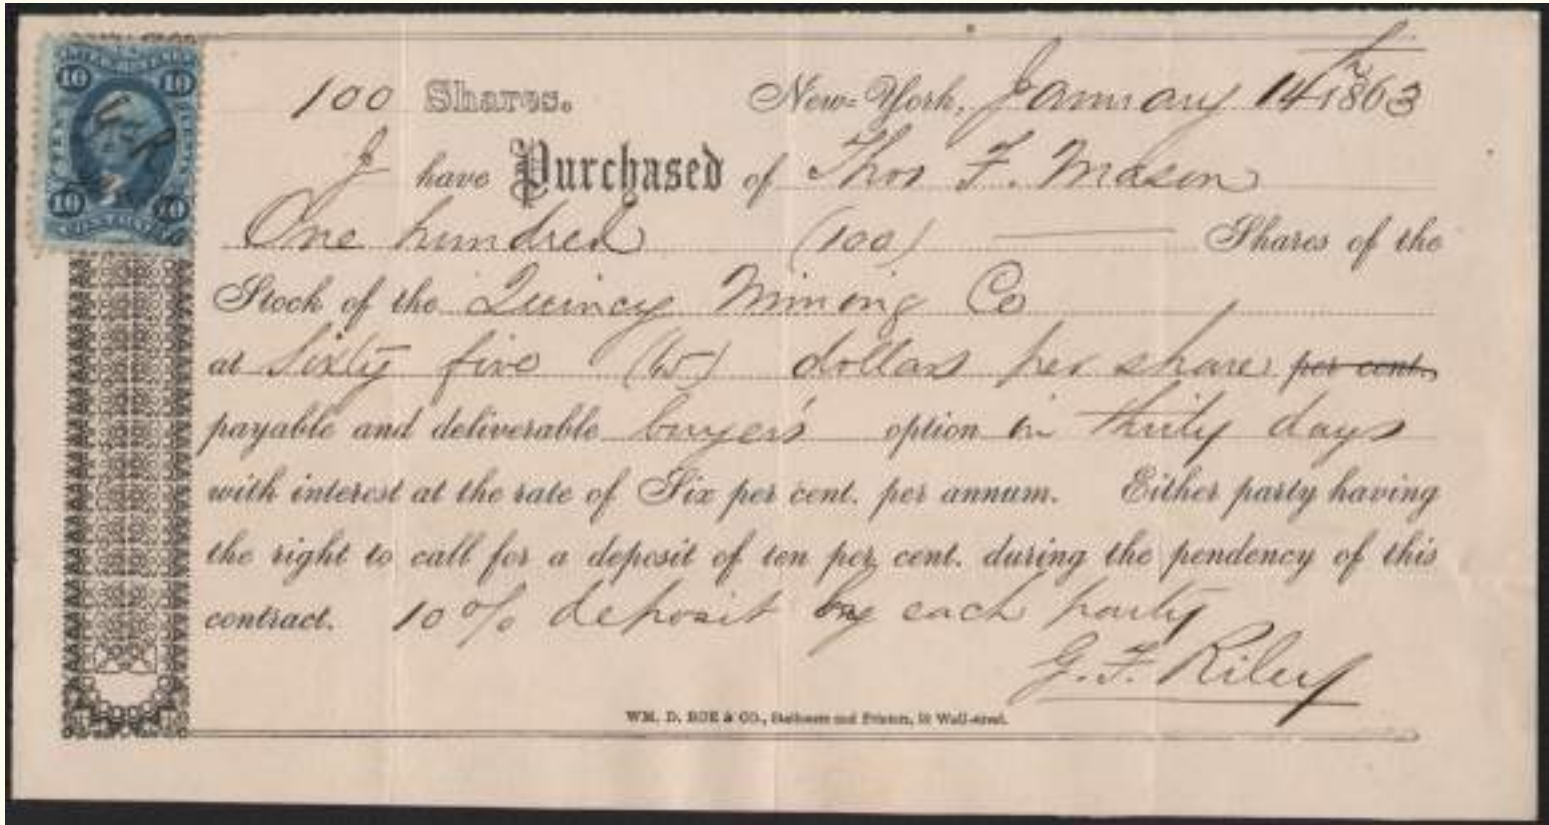 100 Shares. New-York, January 14th 1863
I have Purchased of Thos F. Mason
One hundred (100) Shares of the
Stock of the Quincy Mining Co
at Sixty five (65) dollars per share per cent.
payable and deliverable buyer's option in thirty days
with interest at the rate of Six per cent. per annum. Either party having
the right to call for a deposit of ten per cent. during the pendency of this
contract. 10% deposit by each party
G. F. Riley
WM. D. ROE & CO., Stationers and Printers, Wall-street.
10 10
TEN CENTS
10 10